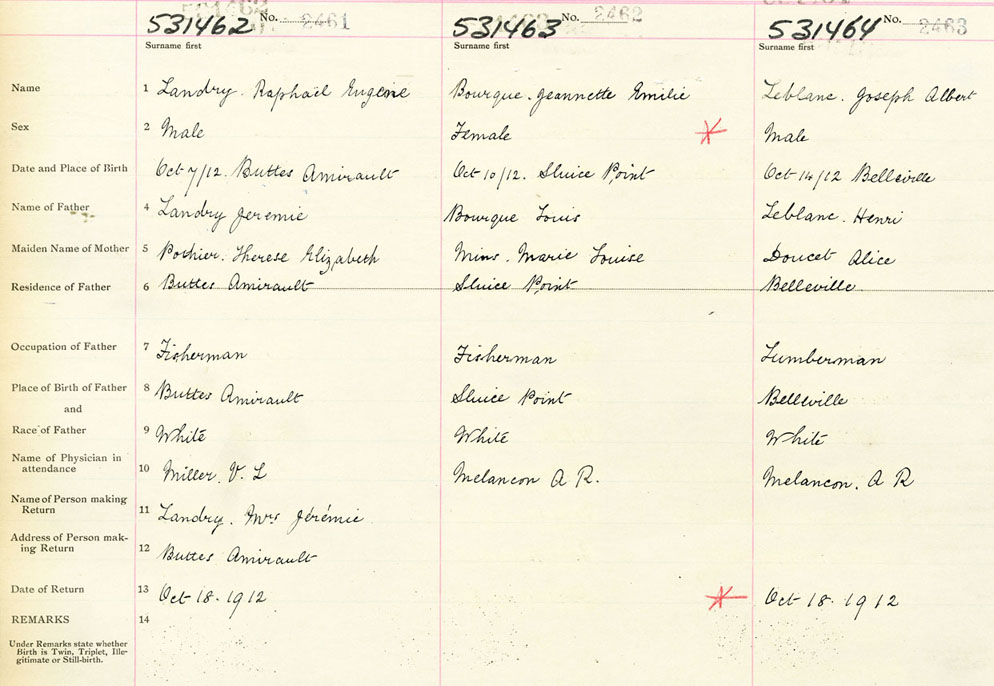 531462 No. 2461 531463 No. 2462 531464 No. 2463
Surname first Surname first Surname first
Name 1 Landry. Raphaël Eugène Bourque. Jeannette Emilie Leblanc. Joseph Albert
Sex 2 Male Female Male
Date and Place of Birth Oct 7/12. Buttes Amirault Oct 10/12. Sluice Point Oct 14/12 Belleville
Name of Father 4 Landry Jeremie Bourque Louis Leblanc. Henri
Maiden Name of Mother 5 Pothier. Therese Elizabeth Mins. Marie Louise Doucet Alice
Residence of Father 6 Buttes Amirault Sluice Point Belleville
Occupation of Father 7 Fisherman Fisherman Lumberman
Place of Birth of Father 8 Buttes Amirault Sluice Point Belleville
and
Race of Father 9 White White White
Name of Physician in
attendance 10 Miller. V. L Melancon A R. Melancon. A R
Name of Person making
Return 11 Landry. Mrs Jérémie
Address of Person mak-
ing Return 12 Buttes Amirault
Date of Return 13 Oct 18. 1912 Oct 18. 1912
REMARKS 14
Under Remarks state whether
Birth is Twin, Triplet, Ille-
gitimate or Still-birth.